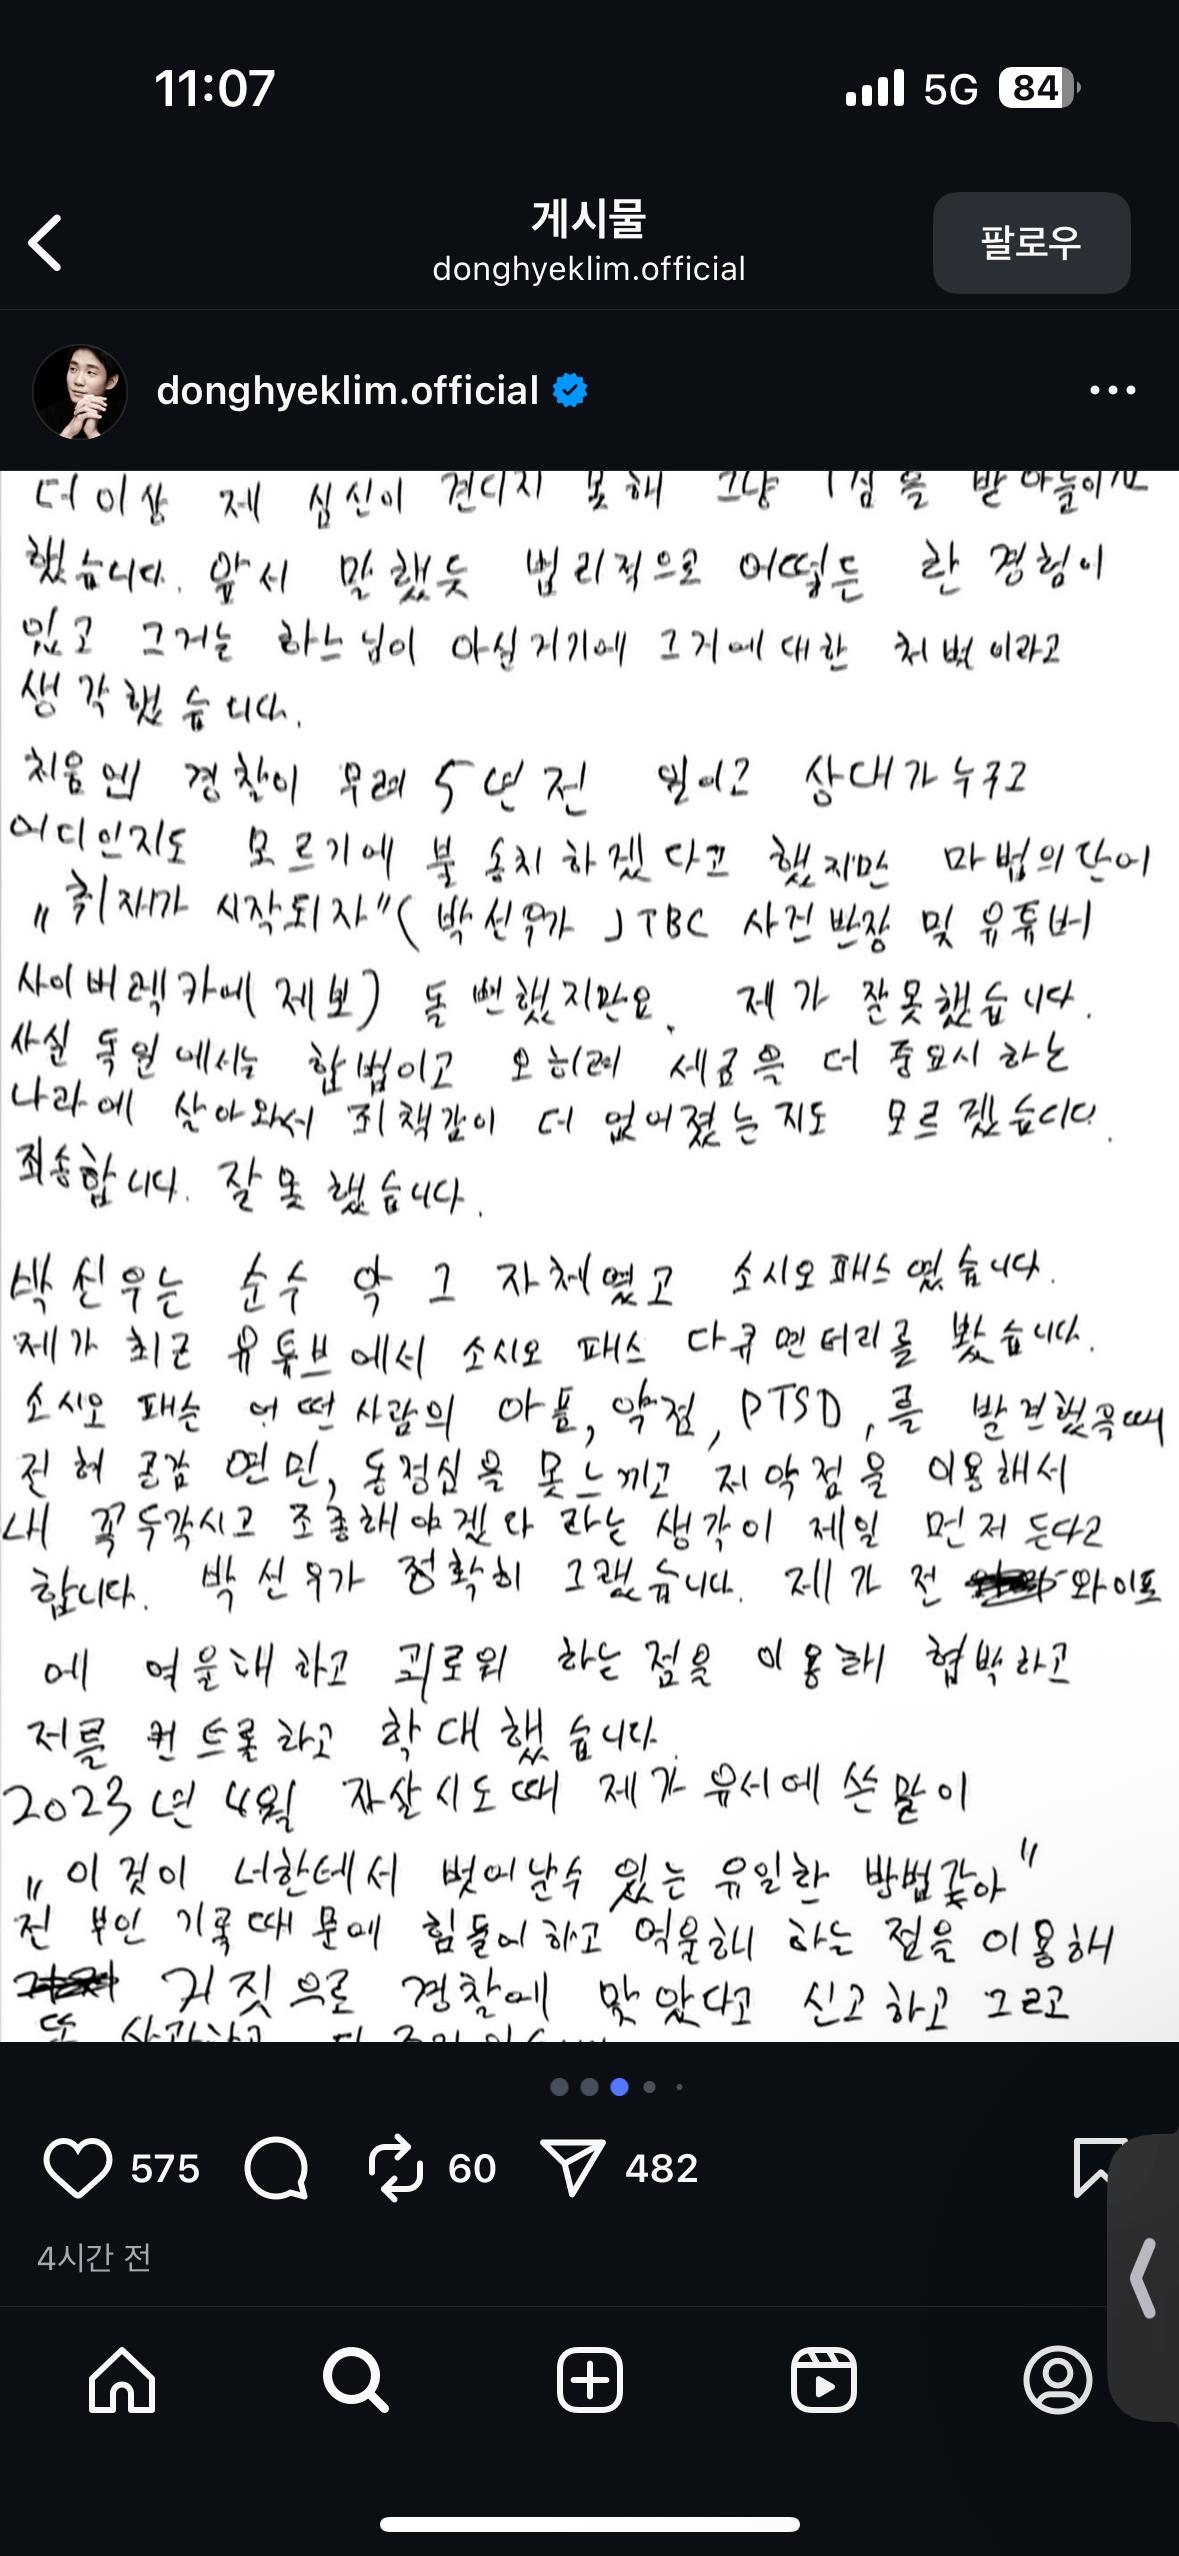 11:07
5G 84
게시물
donghyeklim.official
팔로우
donghyeklim.official
더이상 제 심신이 견디지 못해 그냥 1심을 받아들이고
했습니다. 앞서 말했듯 법리적으로 어떻든 한 경험이
있고 그거는 하느님이 아실거기에 그거에 대한 처벌이라고
생각했습니다.
처음엔 경찰이 무려 5년전 일이고 상대가 누구고
어디인지도 모르기에 불송치하겠다고 했지만 마법의 단어
"취재가 시작되자" (박선우가 JTBC 사건반장 및 유튜버
사이버렉카에 제보) 돌변했지만요. 제가 잘못했습니다.
사실 독일에서는 합법이고 오히려 세금을 더 중요시 하는
나라에 살아와서 죄책감이 더 없어졌는지도 모르겠습니다.
죄송합니다. 잘못했습니다.
박선우는 순수 악 그 자체였고 소시오패스였습니다.
제가 최근 유튜브에서 소시오 패스 다큐멘터리를 봤습니다.
소시오 패슨 어떤 사람의 아픔, 약점, PTSD,를 발견했을때
전혀 공감 연민, 동정심을 못느끼고 저 약점을 이용해서
내 꼭두각시고 조종해야겠다 라는 생각이 제일 먼저 든다고
합니다. 박선우가 정확히 그랬습니다. 제가 전 와이프
에 억울해 하고 괴로워 하는 점을 이용해 협박하고
저를 컨트롤하고 학대했습니다.
2023년 4월 자살시도때 제가 유서에 쓴 말이
"이것이 너한테서 벗어날수 있는 유일한 방법같아"
전 부인 기록때문에 힘들어하고 억울해 하는 점을 이용해
거짓으로 경찰에 맞았다고 신고하고 그리고
또
575 60 482
4시간 전